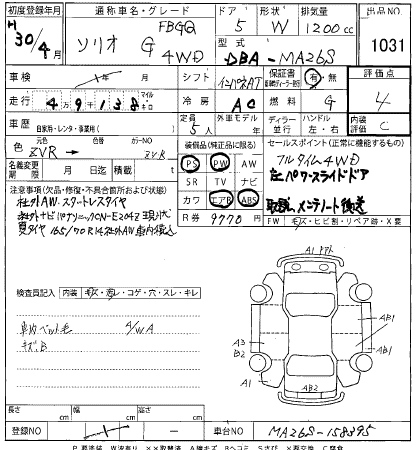 初度登録年月
H
30/4月
通称車名・グレード
FBGQ
ソリオ G 4WD
ドア
5
形状
W
排気量
1200cc
型式
DBA-MA26S
出品NO
1031
車検
年 月
シフト
インパネAT
保証書
有・無
評価点
4
走行
49138
マイル
キロ
冷房
AC
燃料
G
車歴
自家用・レンタ・事業用( )
定員
5人
ディーラー
並行
ハンドル
左・右
内装
評価
C
色
元色NO
カラーNO
ZVR
ZVR
装備品(純正品に限る)
PS PW AW
SR TV ナビ
カワ エアB ABS
セールスポイント(正常に機能するもの)
フルタイム4WD
左パワースライドドア
取説、メンテノート後送
名義変更
期限
月 日
R券
9770円
注意事項欄(欠品・修復・不具合箇所およびその状態)
社外AW.スタートレスタイヤ
社外ナビ パナソニックCN-E204Z 現状
夏タイヤ 165/70R14 社外AW 車内積込
FW
キズ・ヒビ割・リペア跡・X要
検査員記入
内装
キズ・汚レ・コゲ・穴・スレ・キレ
車内ペット毛
キズ.B
4/WA
A1
A3
B2
A1
AB1
AB1
AB2
長さ
cm
幅
cm
高さ
cm
登録NO
車台NO
MA26S-158395